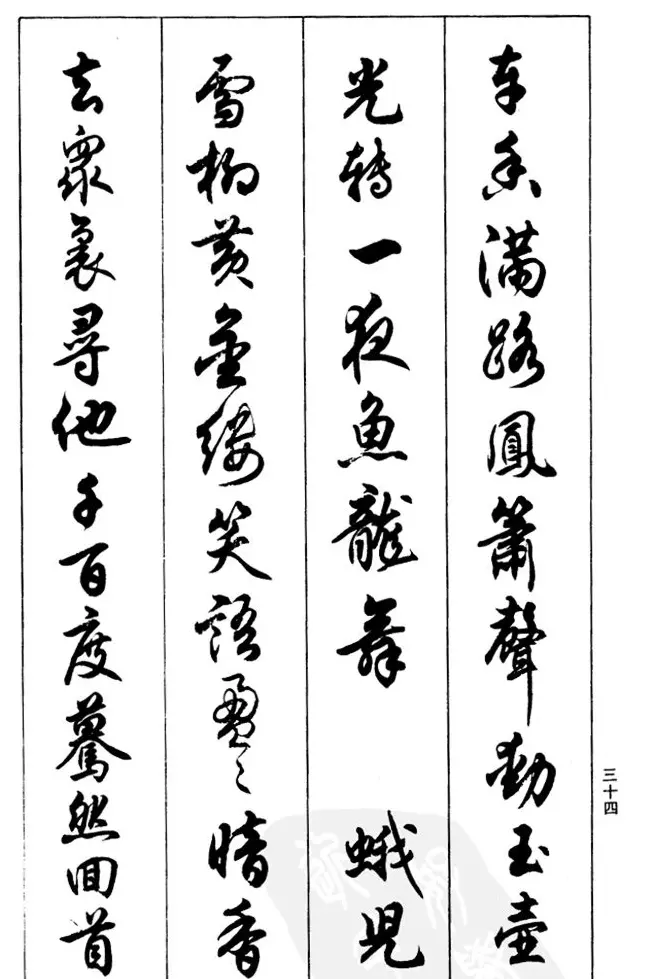 車香滿路鳳簫聲動玉壺
光轉一夜魚龍舞 蛾兒
雪柳黃金縷笑語盈〻暗香
去眾裏尋他千百度驀然囬首
三十四